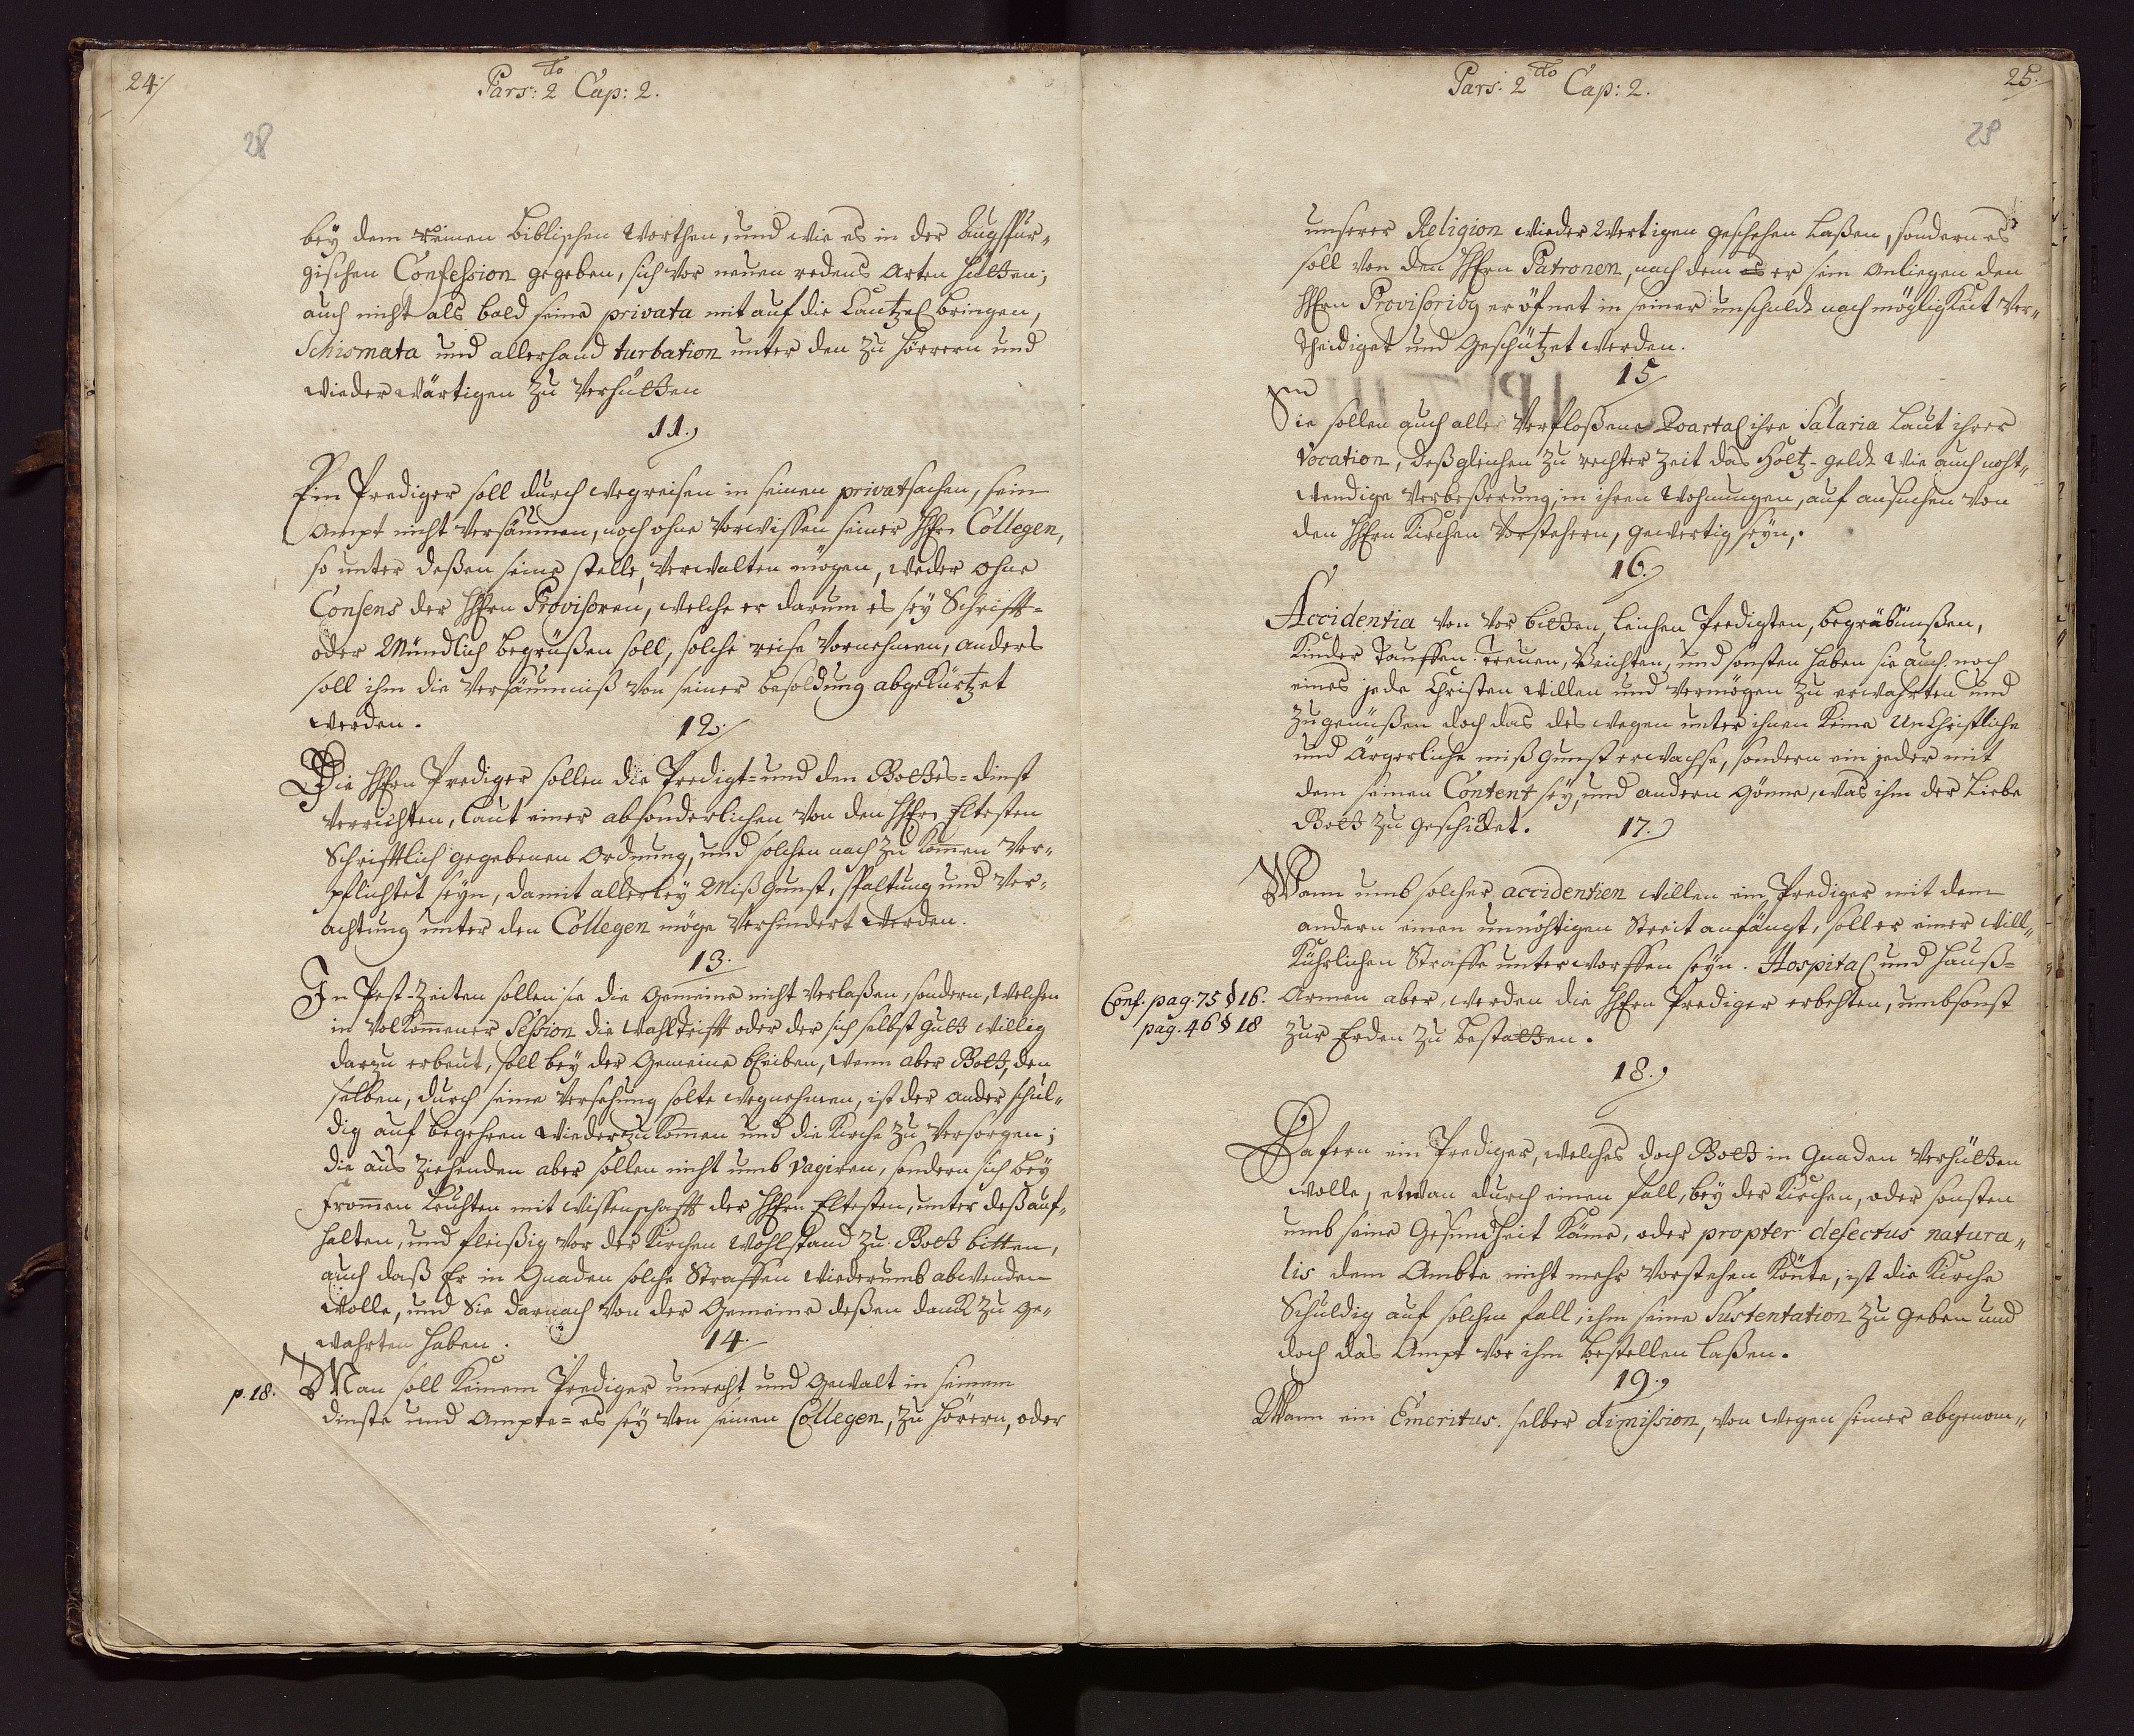 24./
Pars: 2do Cap: 2.
28
bey dem reinen Biblischen Worthen, und wie es in der Augspur„
gischen Confession gegeben, sich vor neuen redens Arten hütten;
auch nicht als bald seine privata mit auf die Cantzel bringen,
Schismata und allerhand turbation unter den Zu hörrern und
wieder wärtigen zu verhütten
11.
Ein Prediger soll durch wegreisen in seinen privat sachen, sein
Ampt nicht versäumen, noch ohne vorwissen seiner HhErn Collegen,
so unter deßen seine stelle, verwalten mögen, weder ohne
Consens der HhErn Provisoren, welche er darum es sey Schrifft-
oder Mündlich begrüßen soll, solche reise vornehmen, anders
soll ihm die Versäumniß von seiner besoldung abgekürtzet
werden.
12./
Die HhErn Prediger sollen die Predigt- und den Gottes-dinst
verrichten, laut einer absonderlichen von den HhErn Eltesten
Schrifftlich gegebenen Ordnung, und solchen nach zu kom̄en ver-
pflichtet seyn, damit allerley Mißgunst, spaltung und ver-
achtung unter den Collegen möge verhindert werden.
13.
In Pest-Zeiten sollen sie die Gemeine nicht verlaßen, sondern, welchen
in volkom̄ener Session die wahl trifft oder der sich selbst gutt willig
darzu erbeut, soll bey der Gemeine bleiben, wenn aber Gott, den
selben, durch seine versehung solte wegnehmen, ist der ander schul„
dig auf begehren wiederzukom̄en und die Kirche zu versorgen;
die aus ziehenden aber sollen nicht umb vagiren, sondern sich bey
from̄en Leuthen mit wissenschafft der HhErn Eltesten, unter deß auf-
halten, und fleißig vor der Kirchen wohlstand zu Gott bitten,
auch daß Er in Gnaden solche Straffen wiederumb abwenden
wolle, und Sie darnach von der Gemeine deßen danck zu ge-
wahrten haben.
14.
p. 18.
Man soll keinem Prediger unrecht und Gewalt in seinem
dinste und Ampte- es sey von seinen Collegen, Zu hörern, oder
Pars: 2do Cap: 2.
25./
29
unserer Religion wieder Wertigen geschehen laßen, sondern es
soll von den HhErn Patronen, nach dem es er sein anliegen den
HhErn Provisoribg eröfnet in seiner unschuldt nach mögligkeit ver„
theidiget und Geschützet werden.
15
Sie sollen auch alle verfloßene Qvartal ihre Salaria laut ihrer
Vocation, deßgleichen zu rechter zeit das Holtz-geldt wie auch noht„
wendige verbeßerung, in ihren wohnungen, auf ansuchen von
den HhErn Kirchen Vorstehern, gewertig seyn.
16.
Accidentia von vor bitten, leichen Predigten, begräbnüßen,
Kinder Tauffen. Treuen, Beichten, und sonsten haben sie auch noch
eines jede Christen willen und vermögen zu erwahrten und
zu genüßen doch das des wegen unter ihnen keine UnChristliche
und Ärgerliche mißgunst erwachse, sondern ein jeder mit
dem seinen Content sey, und andern gönne, was ihm der Liebe
Gott zu geschicket.
17.
Wann umb solcher accidentien willen ein Prediger mit dem
andern einen unnöhtigen Streit anfängt, soll er einer will„
kührlichen Straffe unterworffen seyn. Hospital und Hauß-
Conf. pag. 75 § 16.
pag. 46 § 18
Armen aber, werden die HhErn Prediger erbehten, umbsonst
zur Erden zu bestatten.
18.
Dafern ein Prediger, welches doch Gott in Gnaden verhütten
wolle, etwan durch einen fall, bey der Kirchen, oder sonsten
umb seine Gesundheit käme, oder propter defectus natura„
lis dem Ambte nicht mehr vorstehen könte, ist die Kirche
Schuldig auf solchen fall, ihm seine Sustentation zu geben und
doch das Ampt vor ihm bestellen laßen.
19.
Wann ein Emeritus. selber dimission, von wegen seiner abgenom„